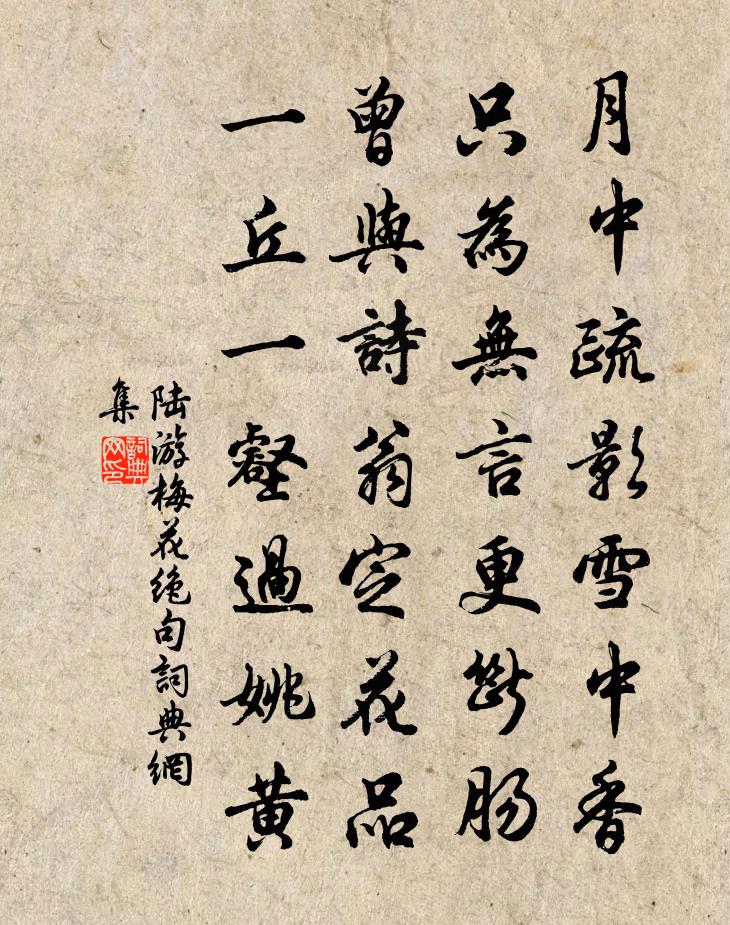 月中疏影雪中香
只為無言更斷腸
曾與詩翁定花品
一丘一壑過姚黃
陆游梅花絶句詞典網
集
詞典
网印